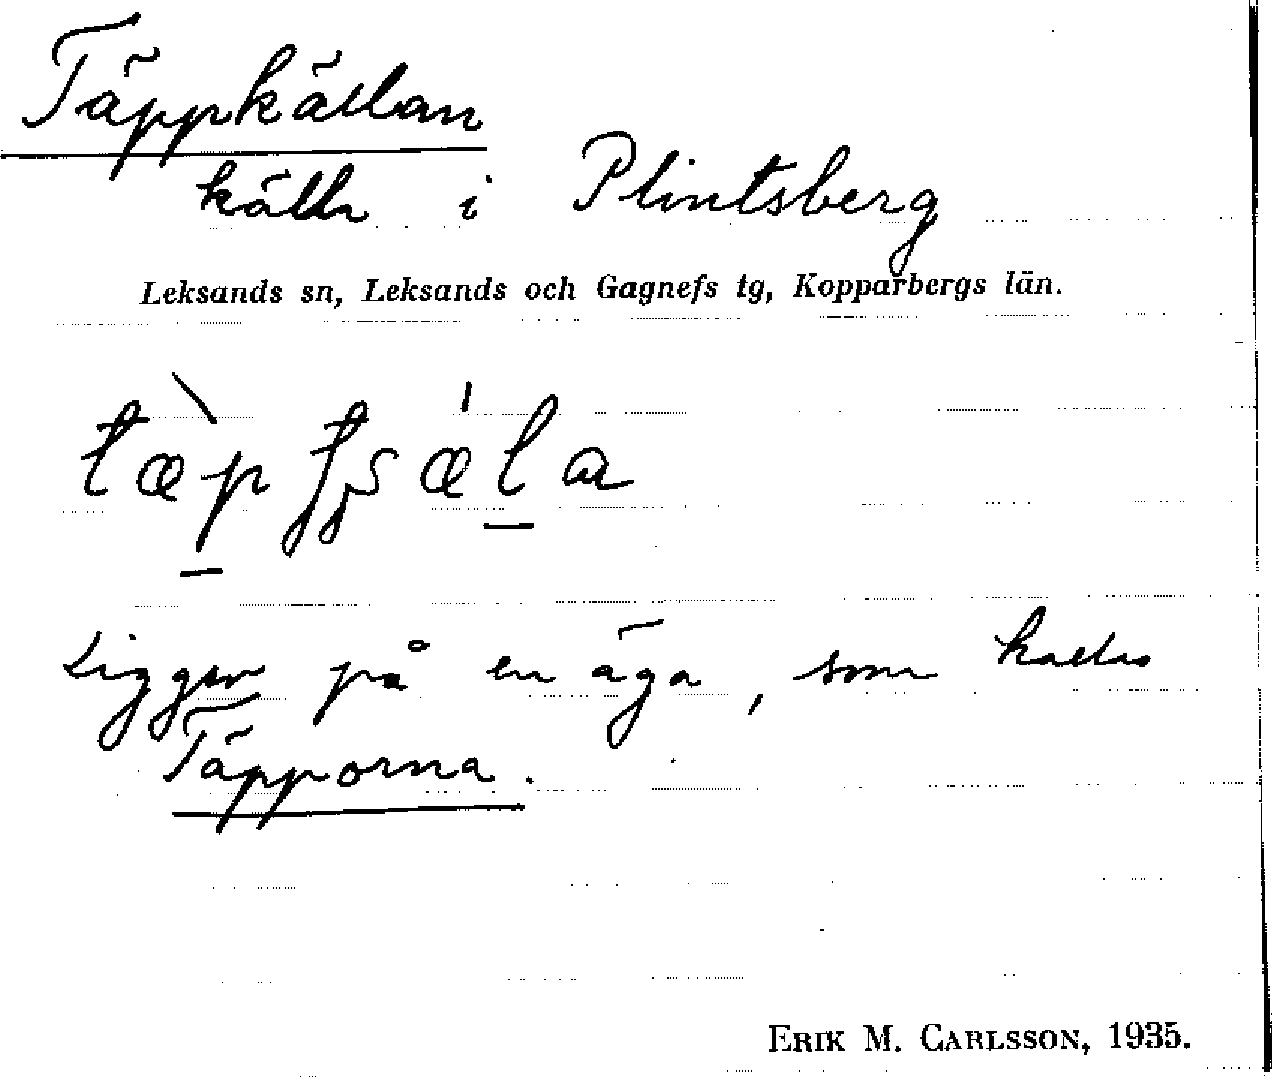 Täppkällan
källa i Plintsberg
Leksands sn, Leksands och Gagnefs tg, Kopparbergs län.
Ligger på en äga, som kallas
Täpporna.
ERIK M. CARLSSON, 1935.